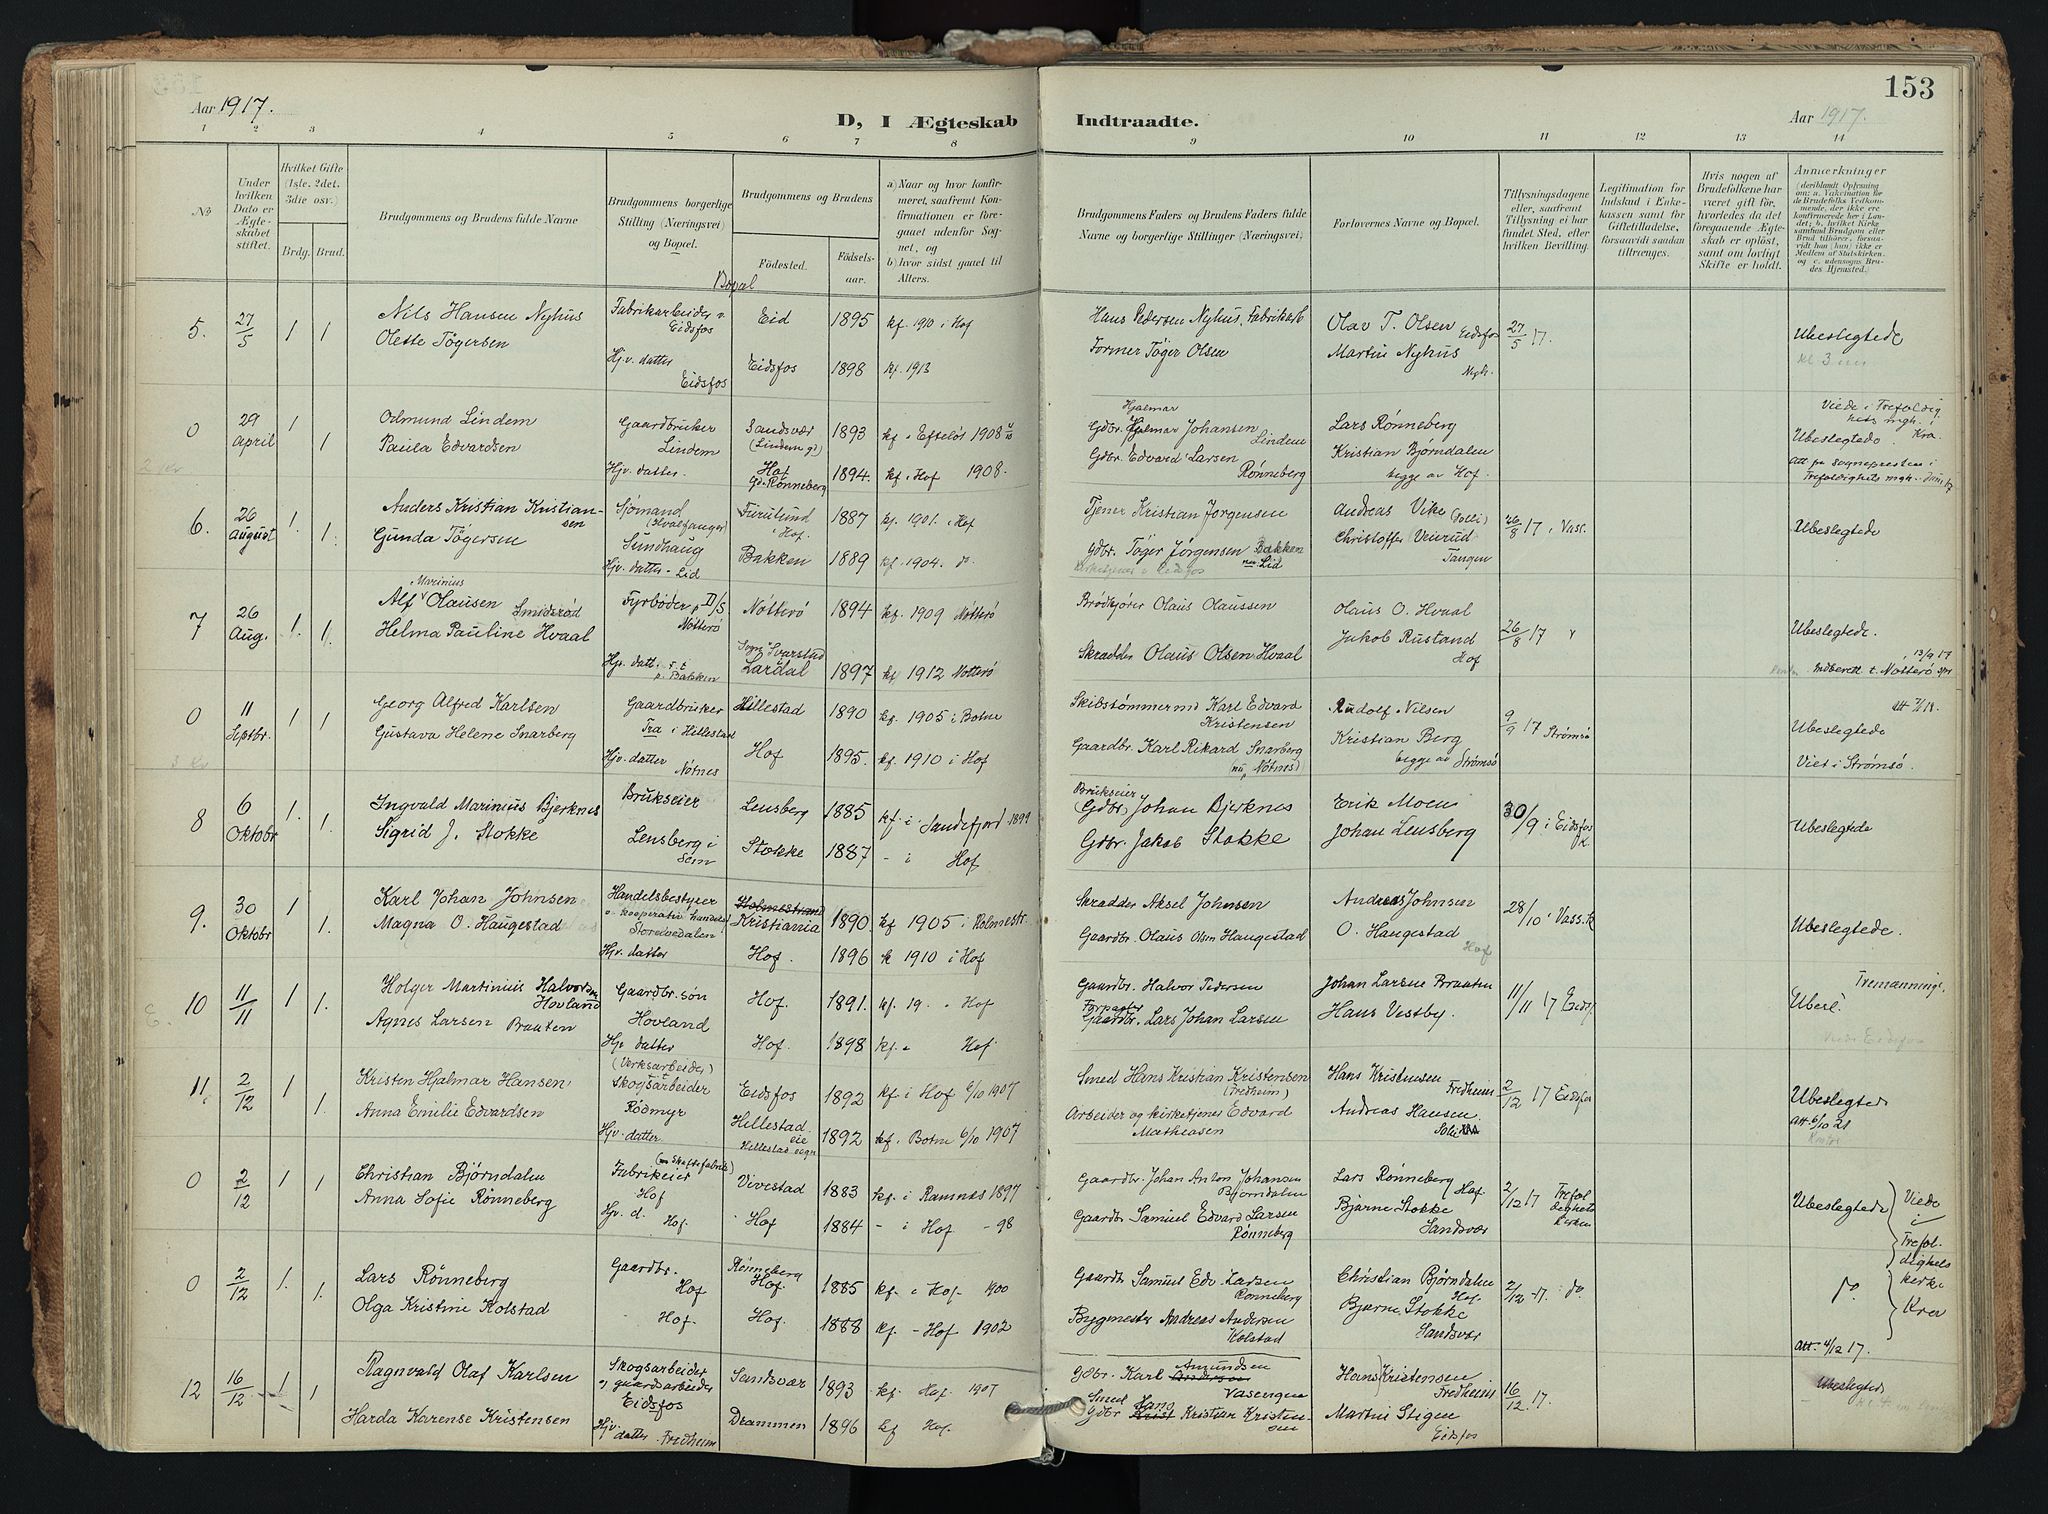 153
Aar 1917.
D, I Ægteskab Indtraadte.
Aar 1917.
1 2 3 4 5 6 7 8 9 10 11 12 13 14
№
Under hvilken Dato er Ægteskabet stiftet.
Hvilket Gifte (1ste, 2det, 3die osv.)
Brdg. Brud.
Brudgommens og Brudens fulde Navne
Brudgommens borgerlige Stilling (Næringsvei) og Bopæl.
Brudgommens og Brudens
Fødested.
Fødselsaar.
Bopæl
a) Naar og hvor konfirmeret, saafremt Konfirmationen er foregaaet udenfor Sognet, og
b) hvor sidst gaaet til Alters.
Brudgommens Faders og Brudens Faders fulde Navne og borgerlige Stillinger (Næringsvei)
Forlovernes Navne og Bopæl.
Tillysningsdagene eller, saafremt Tillysning ei har fundet Sted, efter hvilken Bevilling.
Legitimation for Indskud i Enkekassen samt for Giftetilladelse, forsaavidt saadan tiltrænges.
Hvis nogen af Brudefolkene har været gift før, hvorledes da det foregaaende Ægteskab er opløst, samt om lovligt Skifte er holdt.
Anmærkninger
(deriblandt Oplysning om: a. Vakcination for de Brudefolks Vedkommende, der ikke ere konfirmerede her i Landet; b. hvilket Kirkesamfund Brudgom eller Brud tilhører, forsaavidt han (hun) ikke er Medlem af Statskirken, og c. udensogns Brudes Hjemsted.
5. 27/5 1 1 Nils Hansen Nyhus Fabrikarbeider v. Eidsfos Eid 1895 kf. 1910 i Hof Hans Pedersen Nyhus, Fabrikarb Olav T. Olsen Eidsfos 27/5 17. Ubeslegtede
Olette Tøgersen Hjv. datter Eidsfos Eidsfos 1898 kf. 1913 Former Tøger Olsen Martin Nyhus
kl 3
0 29 april 1 1 Odmund Lindem Gaardbruker Lindem Sandsvær (Lindem gd) 1893 kf i Efteløt 1908 Gdbr. Hjalmar Johansen Lindem Lars Rønneberg Viede i Trefoldighets mgh. i Kra. Ubeslegtede
Paula Edvardsen Hjv. datter. Hof Gd. Rønneberg 1894. kf. i Hof 1908. Gdbr. Edvard Larsen Rønneberg Kristian Bjørndalen begge av Hof. Att fra sognepresten i Trefoldighets mgh.
2 kr
6. 26 august 1. 1. Anders Kristian Kristiansen Sjømand (Hvalfanger) Sundhaug Furulund i Hof. 1887 kf. 1901. i Hof Tjener Kristian Jørgensen Andreas Vike 26/8 17 i Vass. Ubeslegtede
Gunda Tøgersen Hjv. datter - Lid Bakken 1889 kf. 1904. do. Gdbr. Tøger Jørgensen Bakken nu Lid Christoffer Veierud Tangen
7 26 Aug. 1. 1. Alf Marinius Olausen Smidsrød Fyrbøder p. D/S. Nøtterø Nøtterø 1894 kf. 1909 Nøtterø Brødkjører Olaus Olaussen Olaus O. Hvaal 26/8 17 Ubeslegtede.
Helma Pauline Hvaal Hjv. datt. p.t. p. Bakken Sogn Svarstad Lardal 1897 kf 1912 Nøtterø Skrædder Olaus Olsen Hvaal Jakob Rustand Hof Indberett t. Nøtterø 13/9 17
0 11 Septbr. 1 1 Georg Alfred Karlsen Gaardbruker Fra i Hillestad Hillestad 1890 kf. 1905 i Botne Skibstømmermd Karl Edvard Kristensen Rudolf Nilsen 9/9 17 Strømsø Ubeslegtede
Gustava Helene Snarberg Hjv. datter Nøtnes Hof 1895. kf. 1910 i Hof Gaardbr. Karl Rikard Snarberg (nu Nøtnes) Kristian Berg begge av Strømsø Viet i Strømsø.
3 Kr
8 6 Oktobr 1. 1. Ingvald Marinius Bjerknes Brukseier Lensberg i Sem Lensberg 1885 kf. i Sandefjord 1899 Brukseier (Gdbr.) Johan Bjerknes Erik Moen 30/9 i Eidsfos k. Ubeslegtede
Sigrid J. Stokke Stokke 1887 - i Hof Gdbr. Jakob Stokke Johan Lensberg
9. 30 Oktobr 1 1. Karl Johan Johnsen Handelsbestyrer Storelvedalen Holmestrand Kristiania 1890 kf 1905 i Holmestr. Skrædder Aksel Johnsen Andreas Johnsen 28/10 i Vass. k Ubeslegtede.
Magna O. Haugestad Hjv. datter Hof. 1896 k 1910 i Hof Gaardbr. Olaus Olsen Haugestad O. Haugestad Hof
10 11/11 1 1. Holger Martinius Halvorsen Hovland Gaardbr. søn Hovland Hof. 1891. kf. 19. Hof Gaardbr. Halvor Pedersen Johan Larsen Braaten 11/11 17 Eidsf Tremænninge. Ubesl.
Agnes Larsen Braaten Hjv datter Hof. 1898 kf. Hof Forpagter Gaardbr. Lars Johan Larsen Hans Vestby.
11. 2/12 1 1. Kristen Hjalmar Hansen (Verksarbeider) Skogsarbeider Rødmyr Eidsfos 1892 kf i Hof 6/10 1907 Smed Hans Kristian Kristensen (Fredheim) Hans Kristensen Fredheim 2/12 17 Eidsfos Ubeslegtede
Anna Emilie Edvardsen Hjv. datter Hillestad eie Hillestad sogn 1892 kf. Botne 6/10 1907 Arbeider og kirketjener Edvard Mathiasen Andreas Hansen Solli Att 6/10 21
0 2/12 1 1 Christian Bjørndalen Fabrikeier Hof Vivestad 1883 kf. i Ramnæs 1897 Gaardbr. Johan Anton Johansen Bjørndalen Lars Rønneberg Hof. 2/12 17 Trefoldighets kirken Ubeslegtede Viede i Trefoldighets kirke Kra
Anna Sofie Rønneberg Hjv. d. Hof. Hof 1884 - i Hof - 98 Gaardbr Samuel Edvard Larsen Rønneberg Bjarne Stokke Sandsvær
0 2/12 1. 1. Lars Rønneberg Gaardbr. Hof Rønneberg Hof. 1885 kf. i Hof. 1900 Gaardb Samuel Edv. Larsen Rønneberg Christian Bjørndalen Hof. 2/12 -17. do. do.
Olga Kristine Kolstad Hof. Hof. 1888 kf. - Hof 1902 Bygmester Andreas Andersen Kolstad Bjarne Stokke Sandsvær Att. 4/12 17.
12 16/12 1 1 Ragnvald Olaf Karlsen Skogsarbeider og gaardsarbeider Eidsfos Sandsvær 1893 kf. Hof. 1907 Gdbr. Karl Amundsen Vasengen Hans Kristensen Fredheim 16/12 17. Ubeslegtede
Harda Karense Kristensen Hjv datter. Fredheim Drammen 1896 kf Hof. Smed Gdbr. Hans Kristian Kristensen Martin Stigen Eidsfos